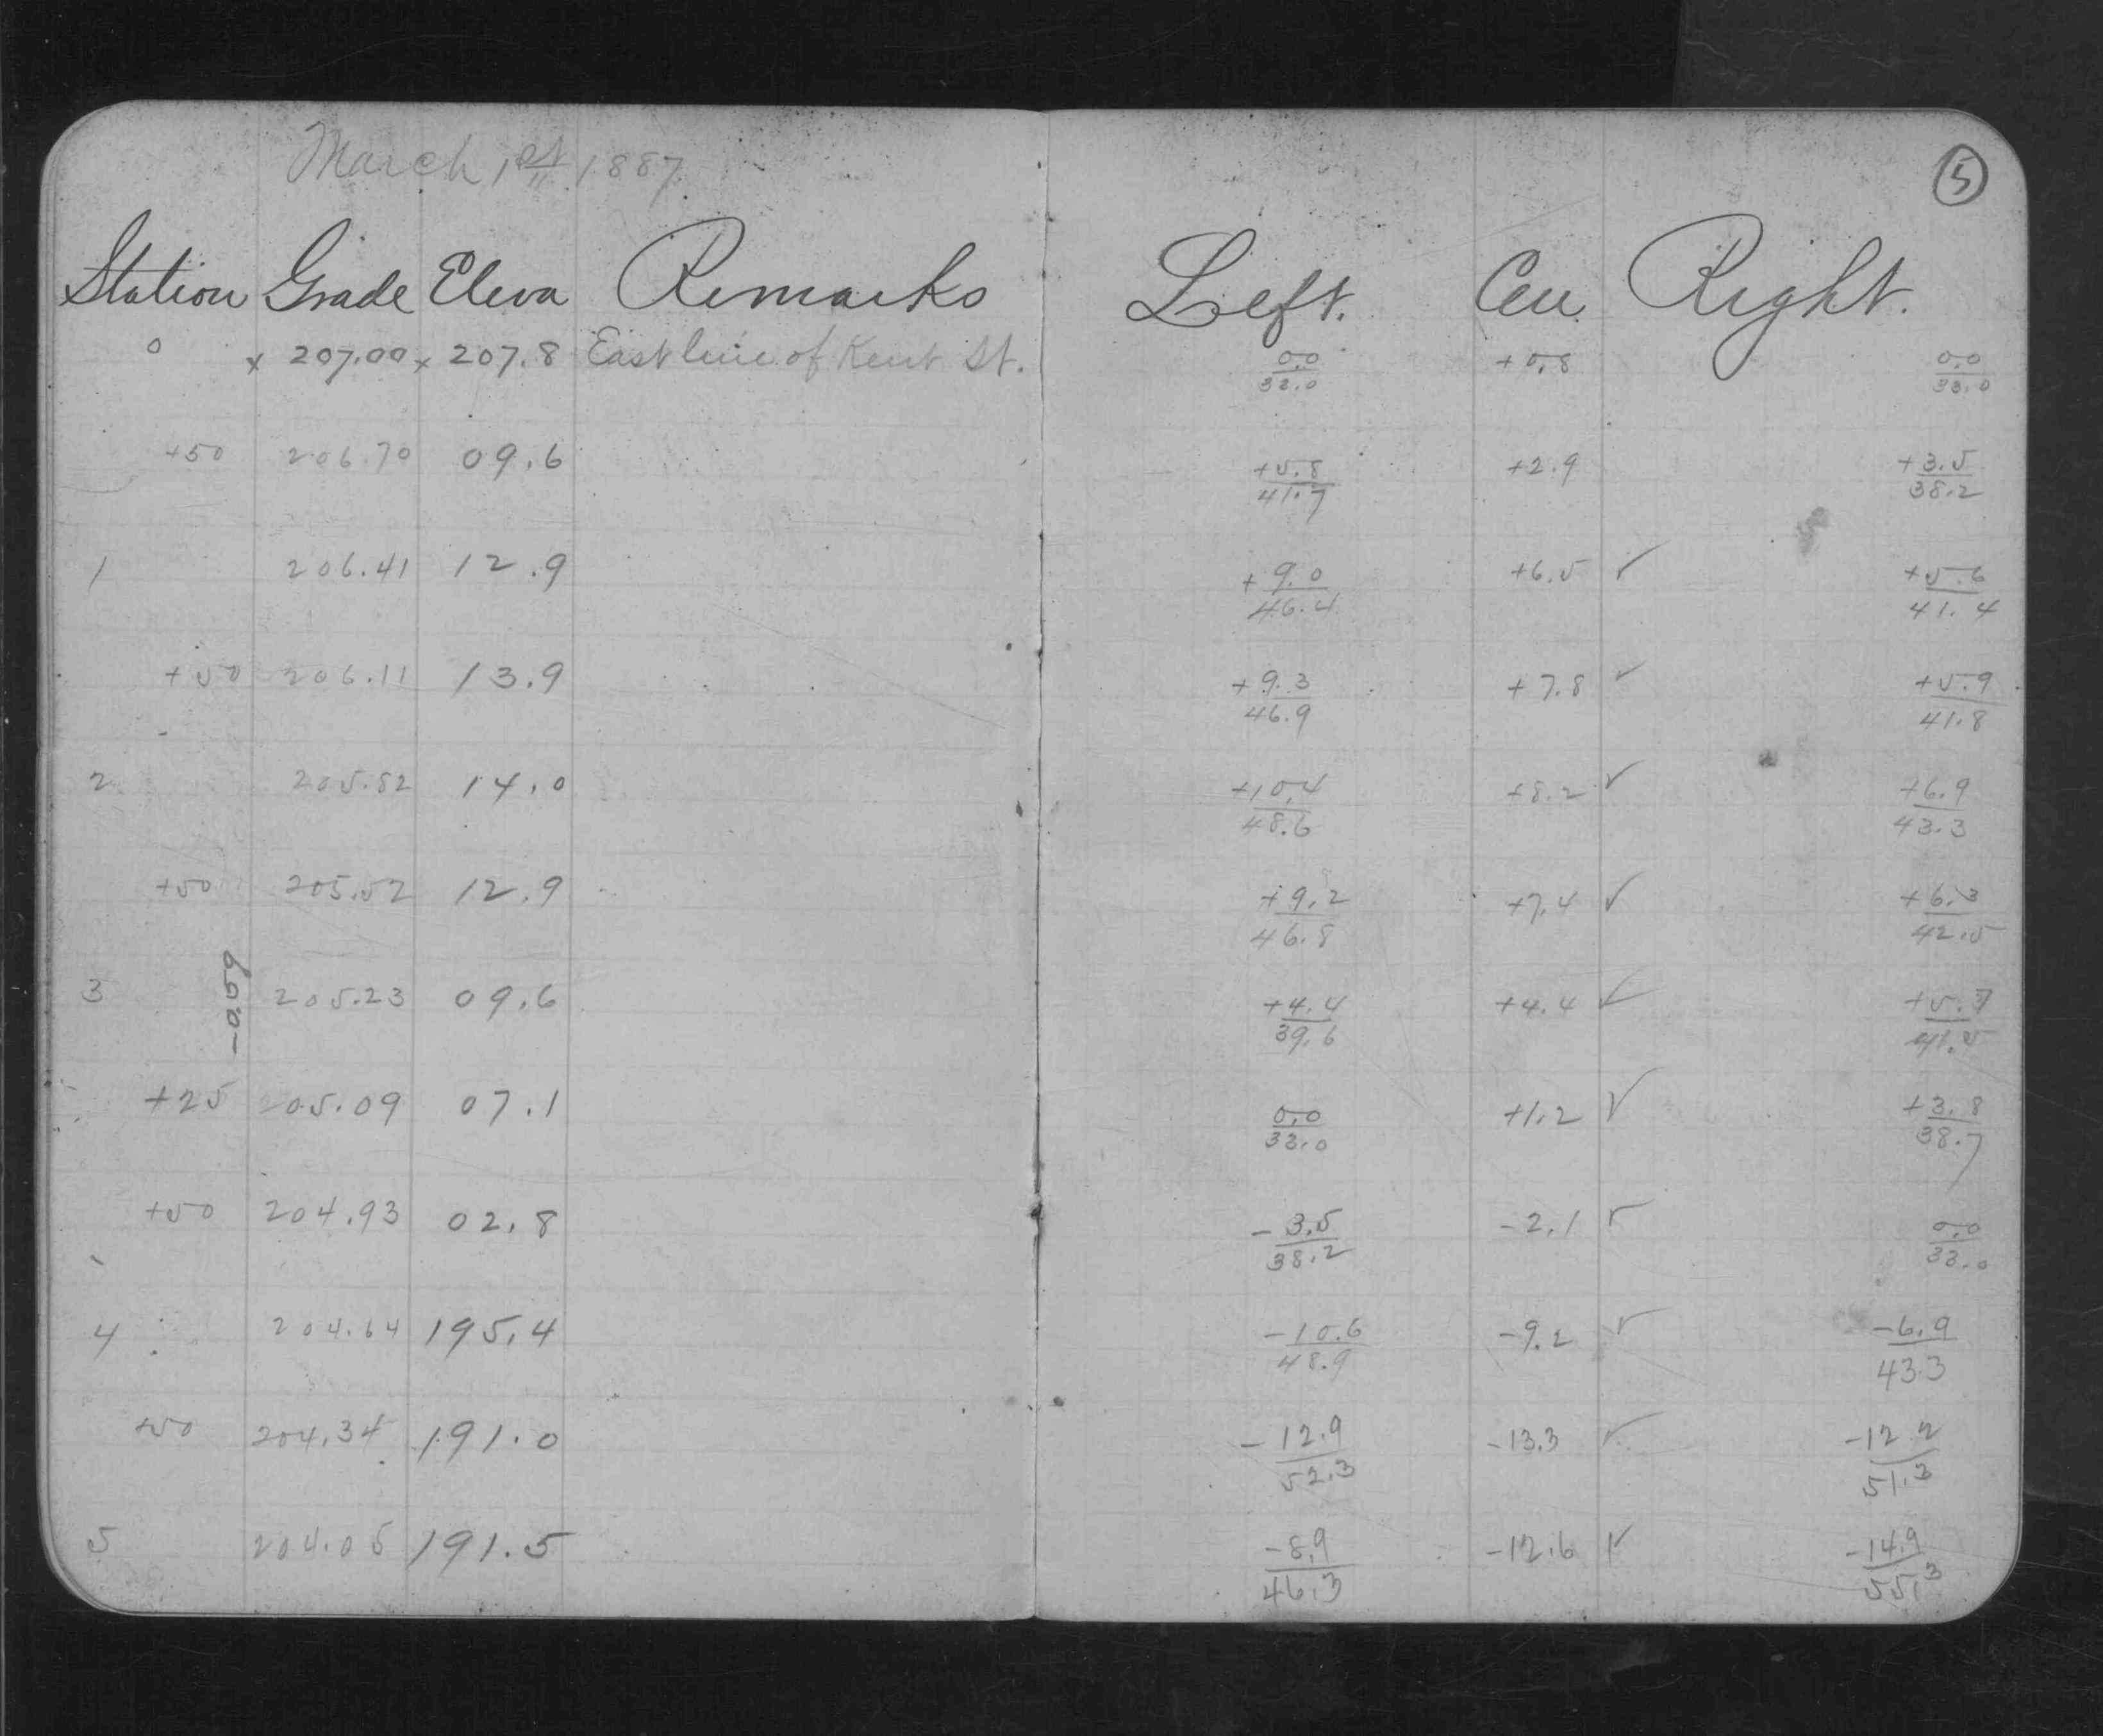 March 1st 1887
5
Station Grade Eleva Remarks Left. Cen. Right.
0 x 207.00 x 207.8 East line of Kent St. 0.0/32.0 +0.8 0.0/33.0
+50 206.70 09.6 +5.8/41.7 +2.9 +3.5/38.2
1 206.41 12.9 +9.0/46.4 +6.5 ✓ +5.6/41.4
+50 206.11 13.9 +9.3/46.9 +7.8 ✓ +5.9/41.8
2 205.82 14.0 +10.4/48.6 +8.2 ✓ +6.9/43.3
+50 205.52 12.9 +9.2/46.8 +7.4 ✓ +6.3/42.5
-0.59
3 205.23 09.6 +4.4/39.6 +4.4 ✓ +5.7/41.5
+25 205.09 07.1 0.0/33.0 +1.2 ✓ +3.8/38.7
+50 204.93 02.8 -3.5/38.2 -2.1 ✓ 0.0/33.0
4 204.64 195.4 -10.6/48.9 -9.2 ✓ -6.9/43.3
+50 204.34 191.0 -12.9/52.3 -13.3 ✓ -12.2/51.3
5 204.05 191.5 -8.9/46.3 -12.6 ✓ -14.9/55.3